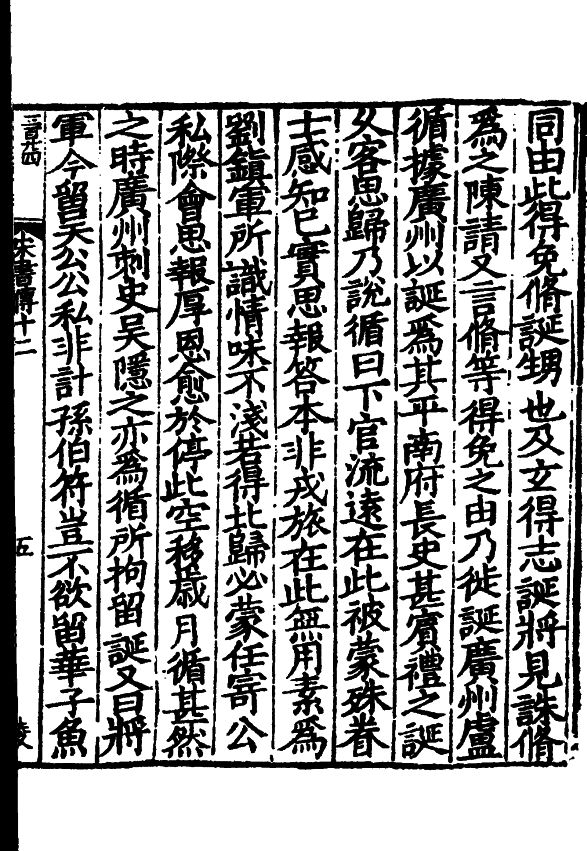 同由此得免脩誕甥也及玄得志誕將見誅脩
爲之陳請又言脩等得免之由乃徙誕廣州盧
循據廣州以誕爲其平南府長史甚賓禮之誕
久客思歸乃說循曰下官流遠在此被蒙殊眷
士感知己實思報答本非戎旅在此無用素爲
劉鎮軍所識情味不淺若得北歸必蒙任寄公
私際會思報厚恩愈於停此空移歲月循甚然
之時廣州刺史吳隱之亦爲循所拘留誕又曰將
軍今留吳公公私非計孫伯符豈不欲留華子魚
宋書傳十二
五